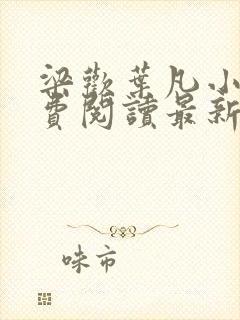 梁歡葉凡小
費閱讀最新
味市